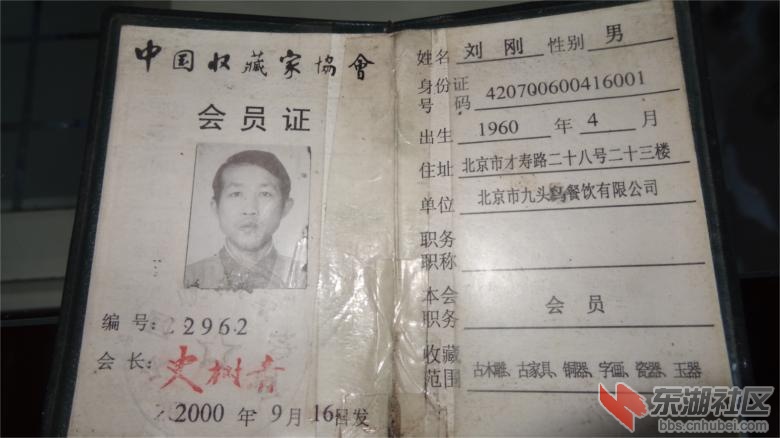 中国收藏家協會
会员证
编号: 22962
会长: 史树青
2000年9月16日发
姓名 刘刚 性别 男
身份证号码 420700600416001
出生 1960 年 4 月
住址 北京市才寿路二十八号二十三楼
单位 北京市九头鸟餐饮有限公司
职务职称
本会职务 会员
收藏范围 古木雕、古家具、铜器、字画、瓷器、玉器
东湖社区
bbs.cnhubei.com